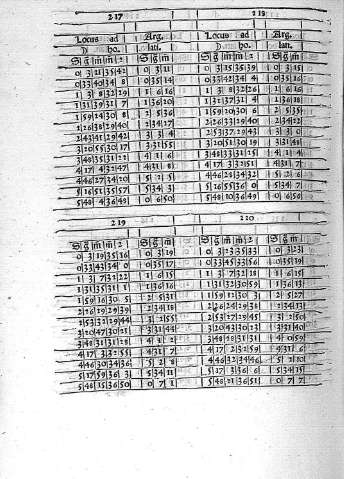 217 218
Locus ad Arg. Locus ad Arg.
D ho. lati. D ho. lati.
S g m 2 S g m S g m 2 S g m
0 3 21 35 42 0 3 11 0 3 25 35 39 0 3 15
0 33 40 34 8 0 35 14 0 33 42 34 4 0 35 16
1 3 8 32 29 1 6 16 1 3 8 32 26 1 6 16
1 31 39 31 7 1 36 20 1 31 37 32 4 1 36 18
1 59 24 30 8 2 5 36 1 59 20 30 6 2 5 35
2 26 38 29 40 2 34 27 2 26 33 29 40 2 34 22
2 53 41 29 42 3 3 4 2 53 37 29 43 3 3 0
3 20 55 30 17 3 31 55 3 20 51 30 19 3 31 48
3 48 35 31 21 4 1 6 3 48 33 31 25 4 1 4
4 17 4 32 47 4 31 8 4 17 3 32 51 4 31 7
4 46 27 34 20 5 2 5 4 46 28 34 32 5 2 6
5 16 51 35 57 5 34 3 5 16 55 36 0 5 34 7
5 48 4 36 43 0 6 50 5 48 10 36 49 0 6 56
219 220
S g m 2 S g m S g m 2 S g m
0 3 19 35 16 0 3 19 0 3 23 35 33 0 3 23
0 33 43 34 0 0 35 17 0 33 45 33 56 0 35 19
1 3 7 32 22 1 6 15 1 3 7 32 18 1 6 15
1 31 35 31 1 1 36 16 1 31 32 30 59 1 36 13
1 59 16 30 5 2 5 31 1 59 12 30 3 2 5 27
2 26 29 29 39 2 34 18 2 26 24 29 38 2 34 13
2 53 32 29 44 3 2 55 2 53 27 29 45 3 2 50
3 20 47 30 21 3 31 44 3 20 43 30 23 3 31 40
3 48 31 31 28 4 1 2 3 48 28 31 31 4 0 59
4 17 3 32 55 4 31 7 4 17 2 32 59 4 31 6
4 46 30 34 36 5 2 8 4 46 32 34 46 5 2 10
5 17 59 36 3 5 34 11 5 17 3 36 6 5 34 15
5 48 15 36 50 0 7 1 5 48 21 36 51 0 7 7